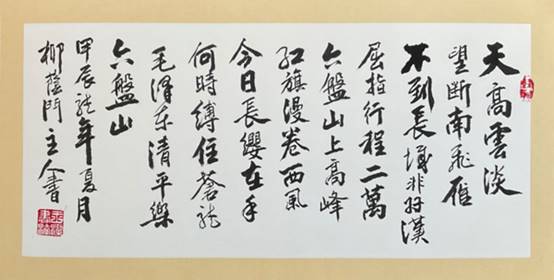 天高雲淡
望断南飛雁
不到長城非好漢
屈指行程二萬
六盤山上高峰
红旗漫卷西風
今日長纓在手
何時縛住蒼龙
毛澤东清平樂
六盤山
甲辰龙年夏月
柳蔭門主人書